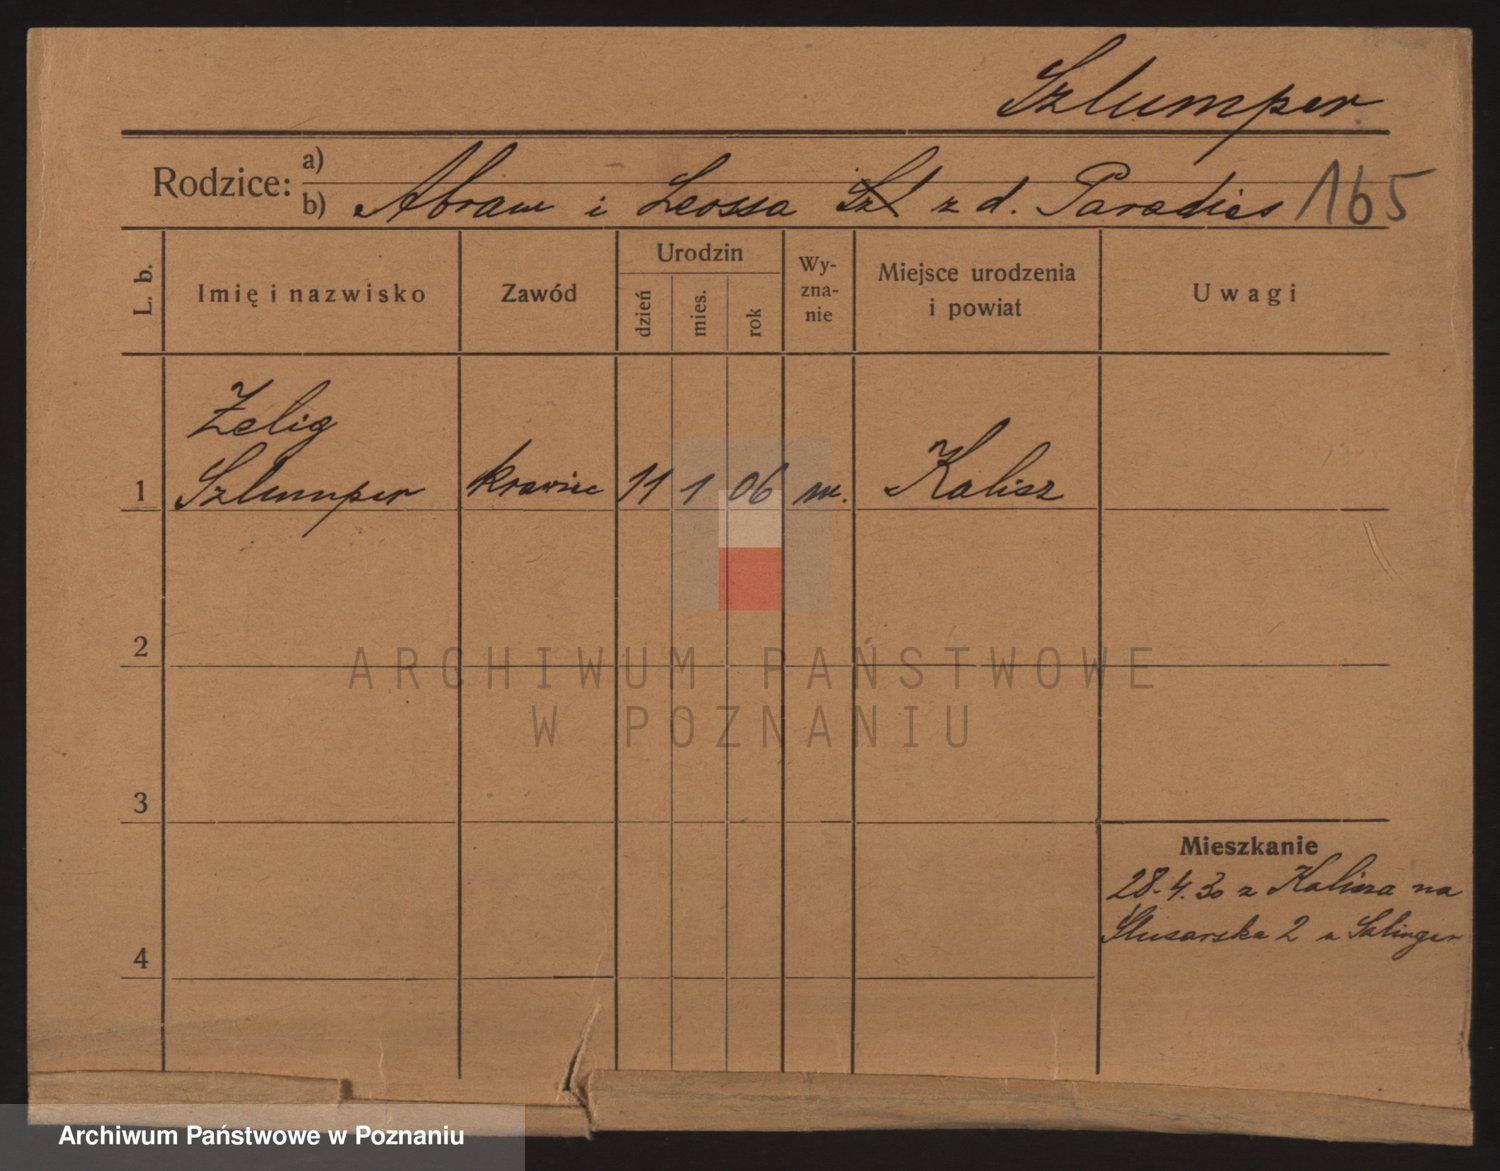 Szlumper
Rodzice: a)
b) Abram i Leossa Szl z d. Paradies 165
L. b.
Imię i nazwisko
Zawód
Urodzin
dzień
mies.
rok
Wy-
zna-
nie
Miejsce urodzenia
i powiat
Uwagi
Zelig
1 Szlumper krawiec 11 1 06 m. Kalisz
2
ARCHIWUM PAŃSTWOWE
W POZNANIU
3
Mieszkanie
28.4.30 z Kalisza na
Ślusarska 2 u Salinger
4
Archiwum Państwowe w Poznaniu